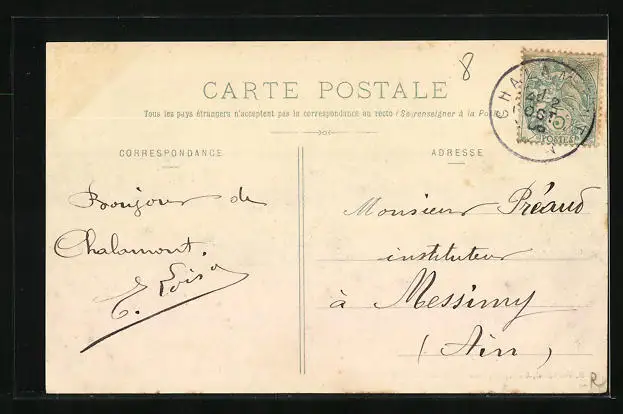 8
CARTE POSTALE
Tous les pays étrangers n'acceptent pas la correspondance au recto (Se renseigner à la Poste)
CORRESPONDANCE
ADRESSE
Bonjour de
Chalamont.
Monsieur Préaud
instituteur
à Messimy
(Ain)
CHALAM
OCT
POSTES
R